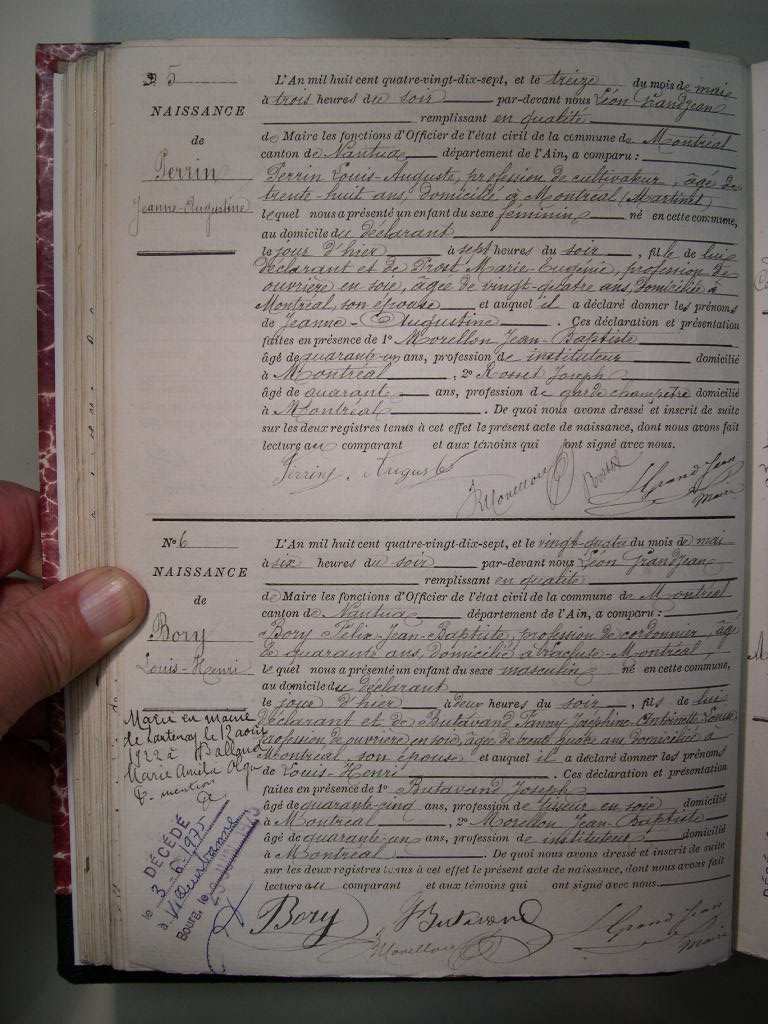 N° 5
NAISSANCE
de
Perrin
Jeanne-Augustine
L'An mil huit cent quatre-vingt-dix-sept, et le treize du mois de mai
à trois heures du soir par-devant nous Léon Grandjean
remplissant en qualité
de Maire les fonctions d'Officier de l'état civil de la commune de Montréal
canton de Nantua, département de l'Ain, a comparu :
Perrin Louis-Auguste, profession de cultivateur, âgé de
trente-huit ans, domicilié à Montréal (Martinet)
lequel nous a présenté un enfant du sexe féminin né en cette commune,
au domicile du déclarant
le jour d'hier à sept heures du soir, fille de lui
déclarant et de Prost Marie-Eugénie, profession de
ouvrière en soie, âgée de vingt-quatre ans, domiciliée à
Montréal, son épouse et auquel il a déclaré donner les prénoms
de Jeanne-Augustine. Ces déclaration et présentation
faites en présence de 1° Morellon Jean-Baptiste
âgé de quarante-un ans, profession de instituteur domicilié
à Montréal, 2° Rosset Joseph
âgé de quarante ans, profession de garde champêtre domicilié
à Montréal. De quoi nous avons dressé et inscrit de suite
sur les deux registres tenus à cet effet le présent acte de naissance, dont nous avons fait
lecture au comparant et aux témoins qui ont signé avec nous.
Perrin Auguste
JBMorellon Rosset LGrandJean
Maire
N° 6
NAISSANCE
de
Bory
Louis-Henri
L'An mil huit cent quatre-vingt-dix-sept, et le vingt-quatre du mois de mai
à six heures du soir par-devant nous Léon GrandJean
remplissant en qualité
de Maire les fonctions d'Officier de l'état civil de la commune de Montréal
canton de Nantua, département de l'Ain, a comparu :
Bory Félix-Jean-Baptiste, profession de cordonnier, âgé
de quarante ans, domicilié à Montréal,
lequel nous a présenté un enfant du sexe masculin né en cette commune,
au domicile du déclarant
le jour d'hier à deux heures du soir, fils de lui
déclarant et de Butavand Fanny-Joséphine-Antoinette-Louise
profession de ouvrière en soie, âgée de trente quatre ans domiciliée à
Montréal son épouse et auquel il a déclaré donner les prénoms
de Louis-Henri. Ces déclaration et présentation
faites en présence de 1° Butavand Joseph
âgé de quarante-cinq ans, profession de tisseur en soie domicilié
à Montréal, 2° Morellon Jean-Baptiste
âgé de quarante-un ans, profession de instituteur domicilié
à Montréal. De quoi nous avons dressé et inscrit de suite
sur les deux registres tenus à cet effet le présent acte de naissance, dont nous avons fait
lecture au comparant et aux témoins qui ont signé avec nous.
Bory JButavand
JBMorellon LGrandJean
Maire
Marié en mairie
de le 12 août
1922 à
Marie Amélie
mention
DÉCÉDÉ
le 3-6-1975
à Villeurbanne
Bourg, le